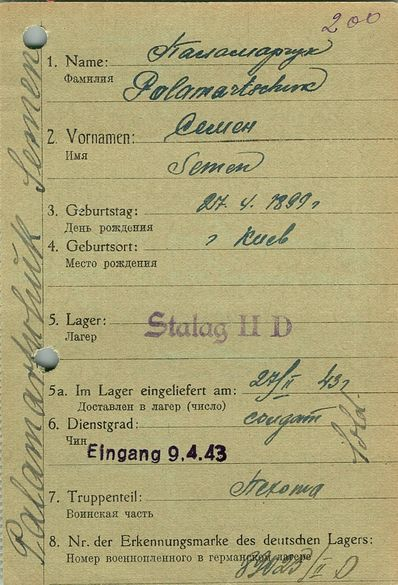 200
1. Name: Паламарчук
Фамилия
Palamartschuk
2. Vornamen: Семен
Имя
Semen
3. Geburtstag: 27. 4. 1899 г
День рождения
4. Geburtsort: г Киев
Место рождения
5. Lager: Stalag II D
Лагер
5a. Im Lager eingeliefert am: 27/II 43 г
Доставлен в лагер (число)
6. Dienstgrad: солдат
Чин
Eingang 9.4.43
Sold.
7. Truppenteil: Пехота
Воинская часть
8. Nr. der Erkennungsmarke des deutschen Lagers:
Номер военнопленного в германском лагере
II D
Palamartschuk Semen